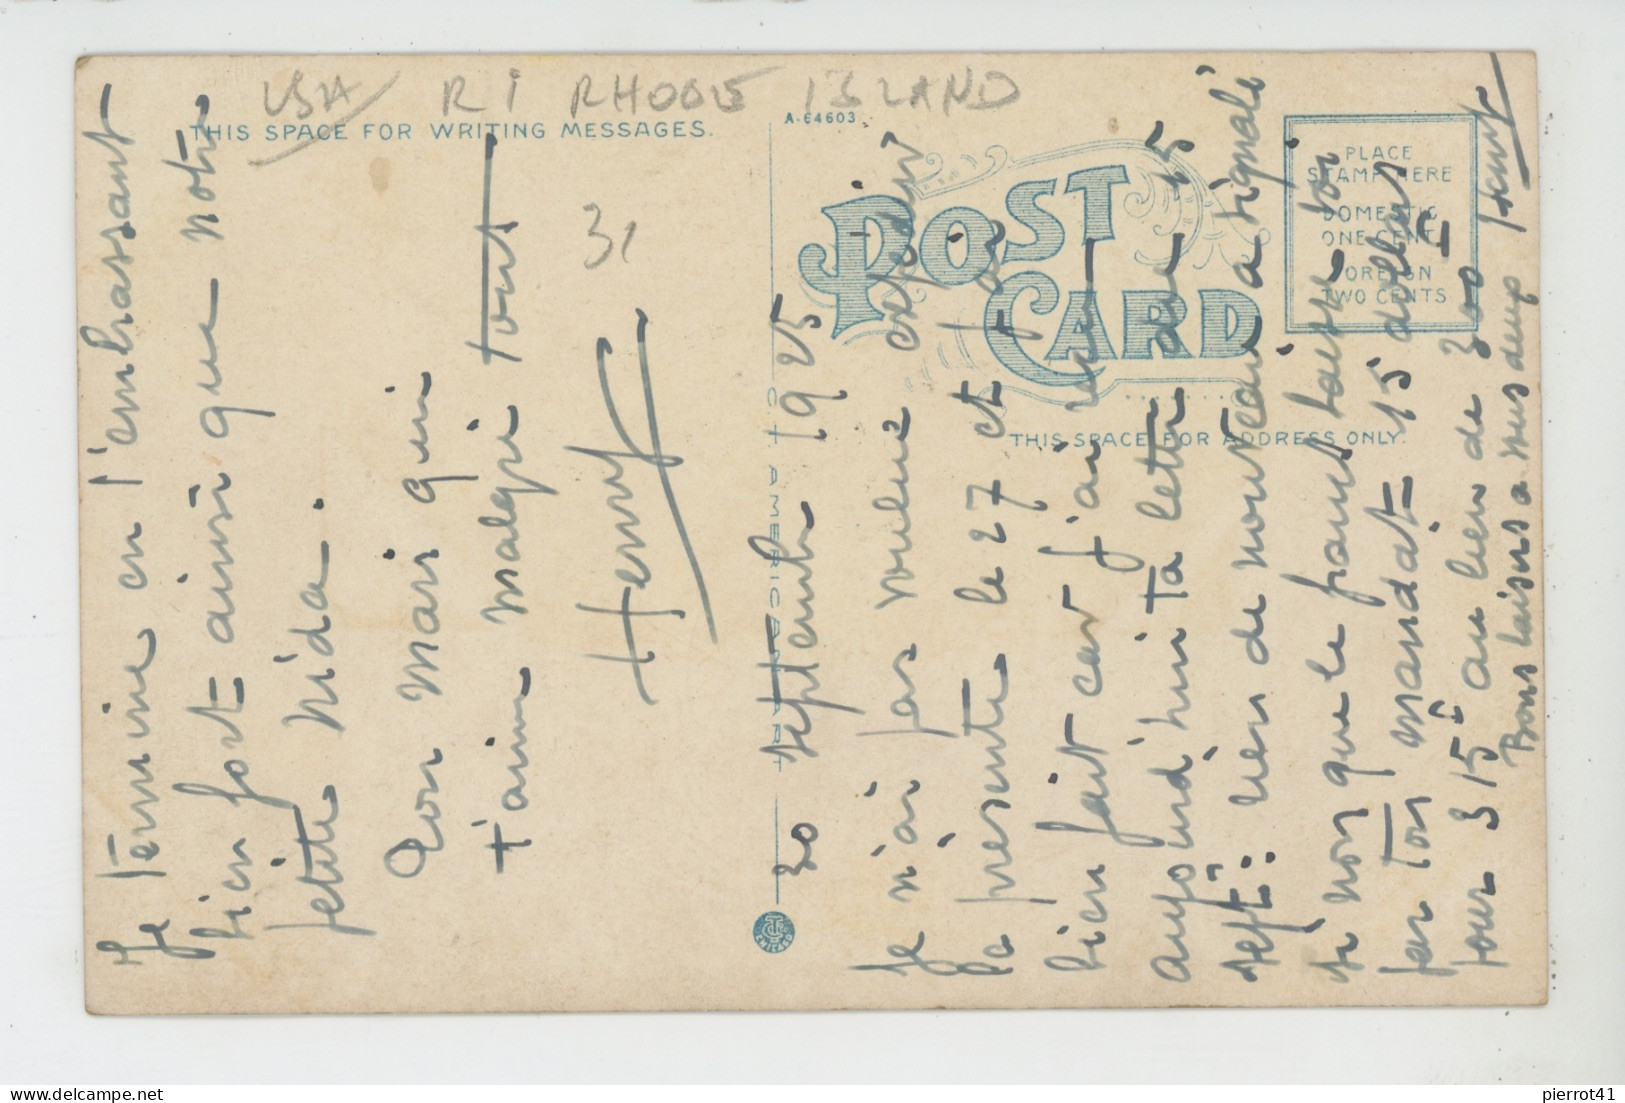 USA R I RHODE ISLAND
THIS SPACE FOR WRITING MESSAGES.
A-64603
POST CARD
PLACE
STAMP HERE
DOMESTIC
ONE CENT
FOREIGN
TWO CENTS
THIS SPACE FOR ADDRESS ONLY.
C. T. AMERICAN ART
CHICAGO
31
30 septembre 1925
Je n'ai pas voulu expédier
la présente le 27 et j'ai
bien fait car j'ai reçu
aujourd'hui ta lettre du 15
sept: rien de nouveau a signalé
si non que le franc baisse ton
par ton mandat 15 dollars
pour 315 F au lieu de 300 F
Bons baisers a vous deux Henry
Je termine en t'embrassant
bien fort ainsi que notre
petite Nida.
Ton Mari qui
t'aime malgré tout
Henry
pierrot41